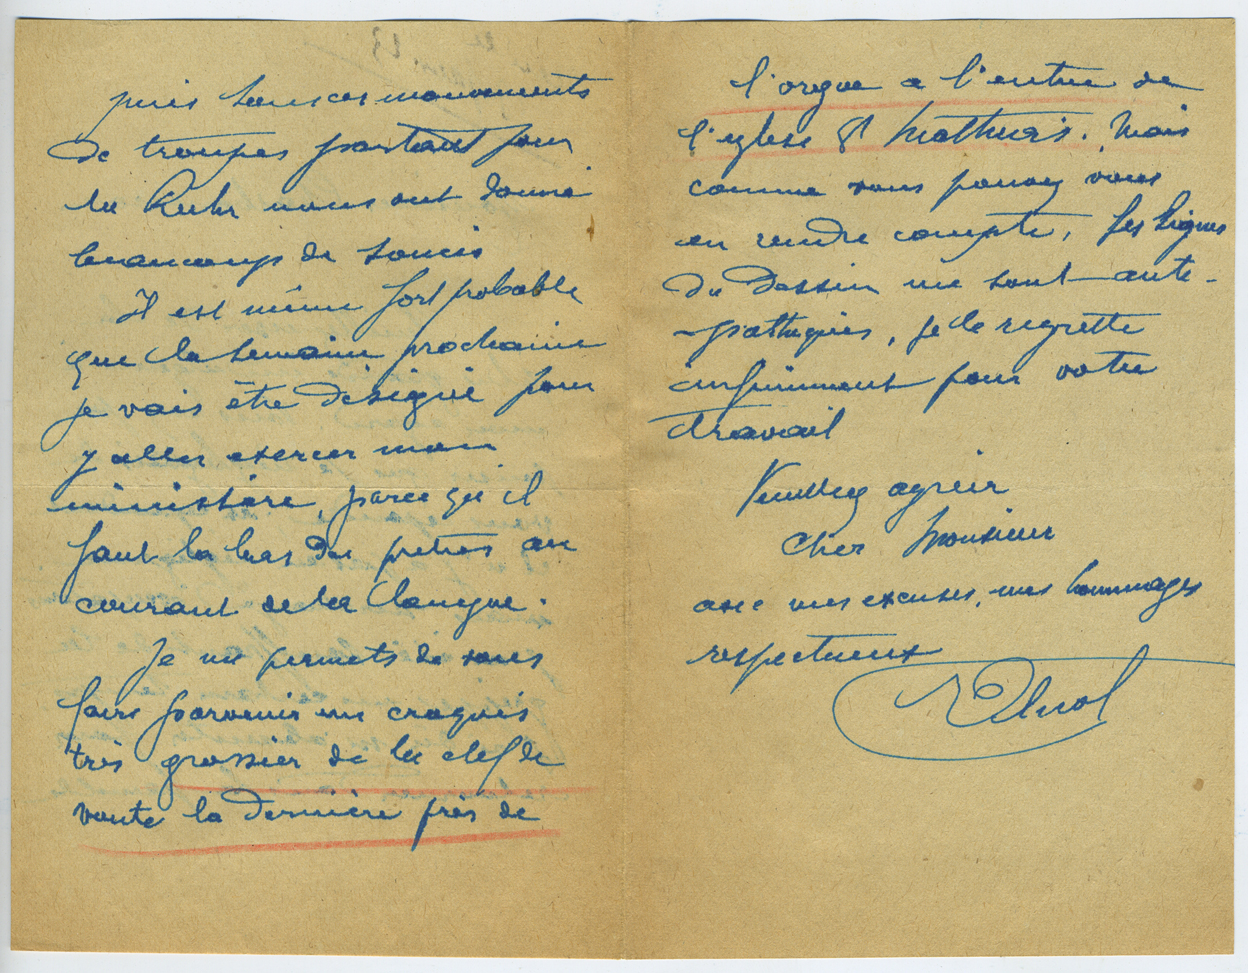 puis tous ces mouvements
de troupes partant pour
la Ruhr nous ont donné
beaucoup de soucis
Il est même fort probable
que la semaine prochaine
je vais être désigné pour
y aller exercer mon
ministère, parce qu'il
faut là bas des prêtres au
courant de la langue.
Je me permets de vous
faire parvenir un croquis
très grossier de la clef de
voute la dernière près de
l'orgue a l'entree de
l'eglise St Mathias. Mais
comme vous pouvez vous
en rendre compte, les lignes
du dessin me sont anti-
-pathiques, je le regrette
infiniment pour votre
travail
Veuillez agréer
Cher Monsieur
avec mes excuses, mes hommages
respectueux